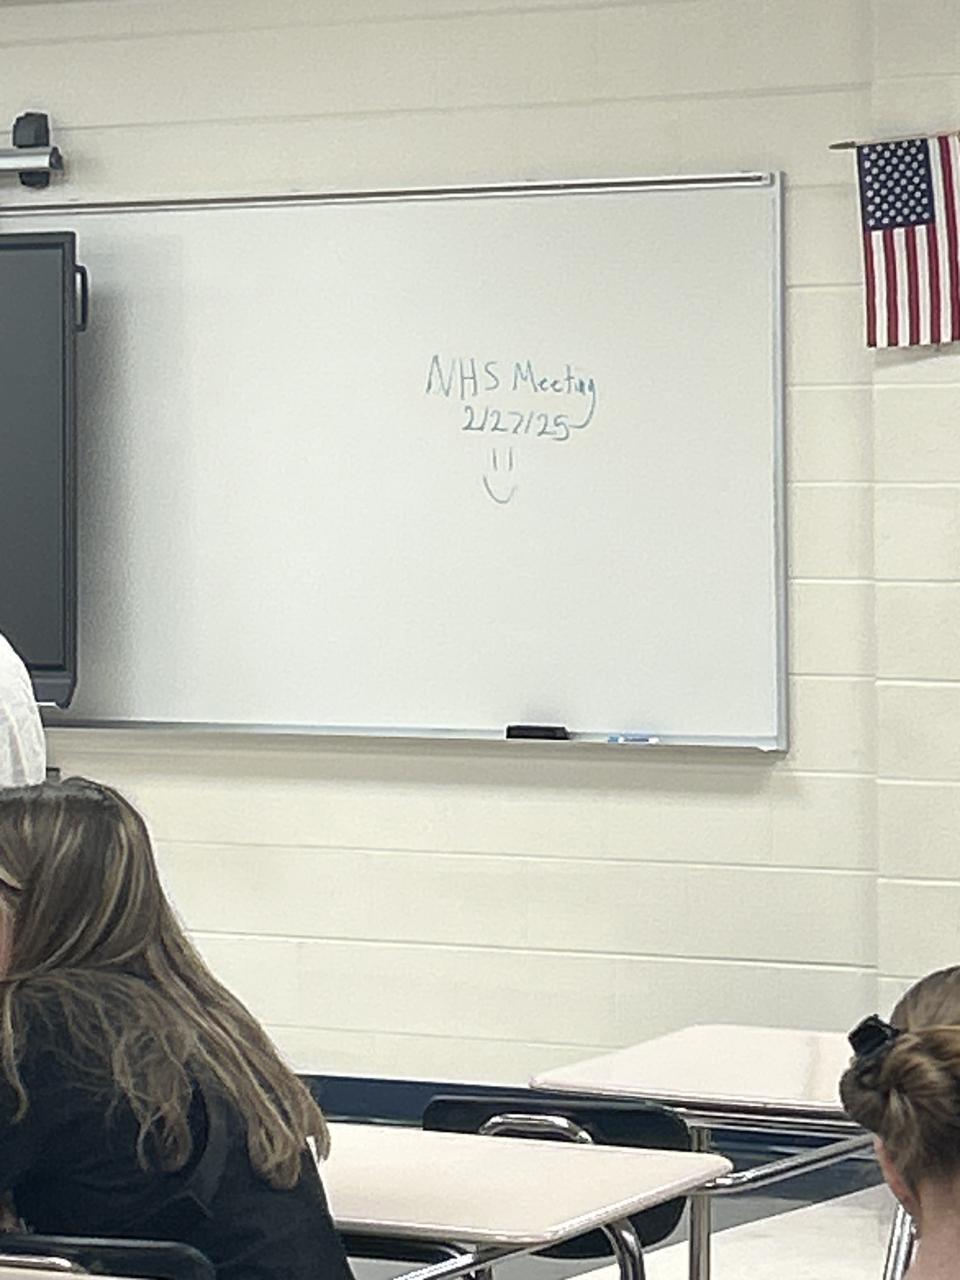 NHS Meeting
2/27/25